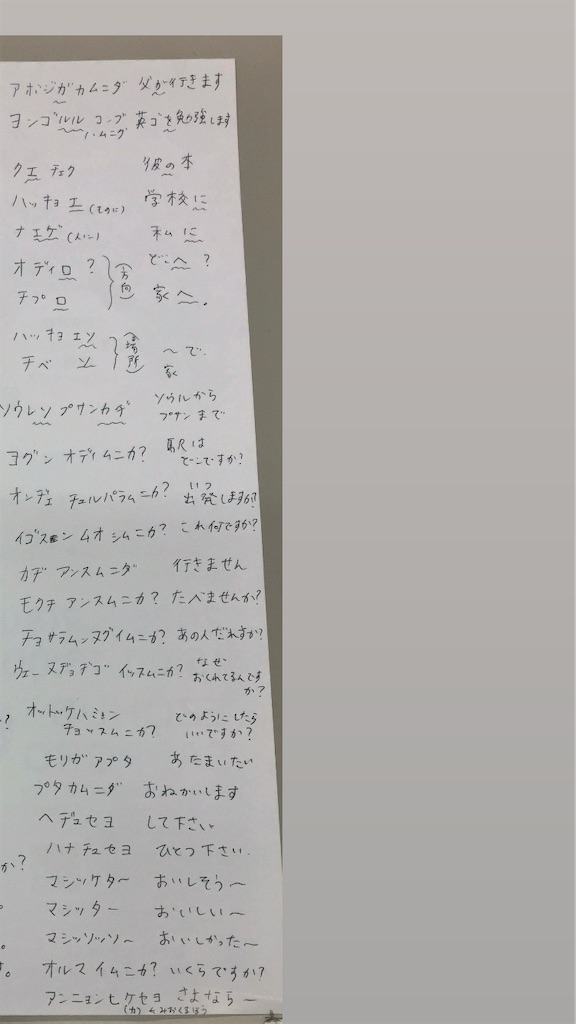 アボジガカムニダ 父が行きます
ヨンゴルル コンブハムニダ 英ゴを勉強します
クエ チェク 彼の本
ハッキョエ(ものに) 学校に
ナエゲ(人に) 私に
オディロ? (方向) どこへ?
チプロ 家へ.
ハッキョエソ (場所) 〜で.
チベソ 家
ソウレソ プサンカヂ ソウルからプサンまで
ヨグン オディムニカ? 駅はどこですか?
オンヂェ チュルパラムニカ? いつ出発しますか?
イゴスン ムオシムニカ? これ何ですか?
カヂ アンスムニダ 行きません
モクチ アンスムニカ? たべませんか?
チョサラムンヌグイムニカ? あの人だれすか?
ウェー ヌヂョヂゴ イッスムニカ? なぜおくれてるんですか?
オットッケハミョン チョッスムニカ? どのようにしたらいいですか?
モリガアプタ あたまいたい
プタカムニダ おねかいします
ヘヂュセヨ して下さい
ハナチュセヨ ひとつ下さい.
か?
マシッケター おいしそう〜
マシッター おいしい〜
マシッソッソー おいしかった〜
す。 オルマイムニカ? いくらですか?
アンニョンヒケセヨ さよなら〜